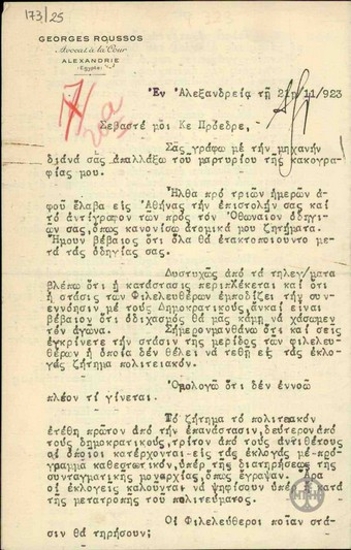 173/25
GEORGES ROUSSOS
Avocat à la Cour
ALEXANDRIE
(Egypte)
Ἐν Ἀλεξανδρείᾳ τῇ 21η/11/923
Σεβαστέ μοι Κε Πρόεδρε,
Σᾶς γράφω μέ τήν μηχανήν
διά νά σᾶς ἀπαλλάξω τοῦ μαρτυρίου τῆς κακογρα-
φίας μου.
Ἦλθα πρό τριῶν ἡμερῶν ἀ-
φοῦ ἔλαβα εἰς Ἀθήνας τήν ἐπιστολήν σας καί
τό ἀντίγραφον τῶν πρός τόν Ὀθωναῖον ὁδηγι-
ῶν σας, ὅπως κανονίσω ἀτομικά μου ζητήματα.
Ἤμουν βέβαιος ὅτι ὅλα θά ἐτακτοποιοῦντο μετά
τάς ὁδηγίας σας.
Δυστυχῶς ἀπό τά τηλεγ/ματα
βλέπω ὅτι ἡ κατάστασις περιπλέκεται καί ὅτι
ἡ στάσις τῶν Φιλελευθέρων ἐμποδίζει τήν συ-
νεννόησιν μέ τούς Δημοκρατικούς, ἄν καί εἶναι
βέβαιον ὅτι ὁ διχασμός θά μᾶς κάμῃ νά χάσωμεν
τόν ἀγῶνα. Σήμερον μανθάνω ὅτι καί σεῖς
ἐγκρίνετε τήν στάσιν τῆς μερίδος τῶν φιλελευ-
θέρων ἡ ὁποία δέν θέλει νά τεθῇ εἰς τάς ἐκλο-
γάς ζήτημα πολιτειακόν.
Ὁμολογῶ ὅτι δέν ἐννοῶ
πλέον τί γίνεται.
Τό ζήτημα τό πολιτειακόν
ἐτέθη πρῶτον ἀπό τήν ἐπανάστασιν, δεύτερον ἀπό
τούς δημοκρατικούς, τρίτον ἀπό τούς ἀντιθέτους
οἱ ὁποῖοι κατέρχονται εἰς τάς ἐκλογάς μέ πρό-
γραμμα καθεστωτικόν, ὑπέρ τῆς διατηρήσεως τῆς
συνταγματικῆς μοναρχίας, ὅπως ἔγραψαν. Ἄρα
οἱ ἐκλογεῖς καλοῦνται νά ψηφίσουν ὑπέρ ἤ κατά
τῆς μετατροπῆς τοῦ πολιτεύματος.
Οἱ Φιλελεύθεροι ποίαν στά-
σιν θά τηρήσουν;